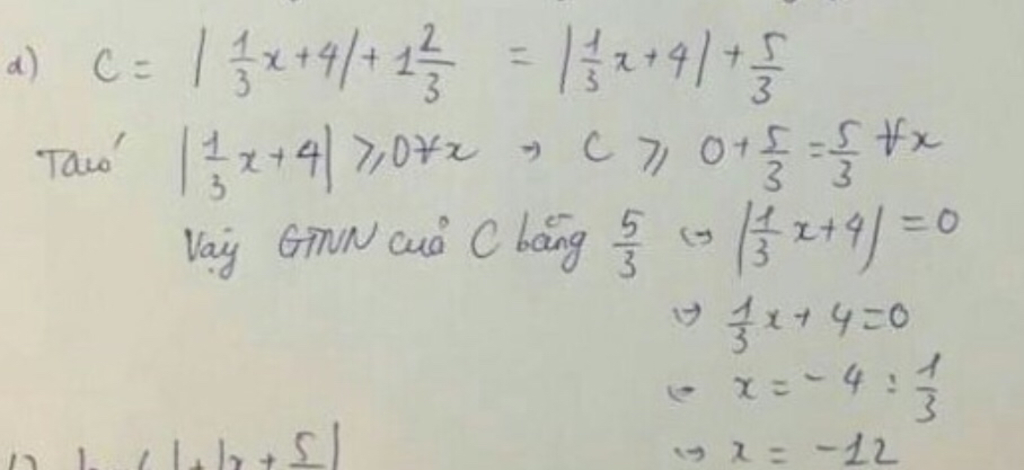 a) C = |1/3 x + 4| + 1 2/3 = |1/3 x + 4| + 5/3
Ta có |1/3 x + 4| ⩾ 0 ∀x → C ⩾ 0 + 5/3 = 5/3 ∀x
Vậy GTNN của C bằng 5/3 ⇔ |1/3 x + 4| = 0
⇔ 1/3 x + 4 = 0
⇔ x = -4 : 1/3
⇔ x = -12